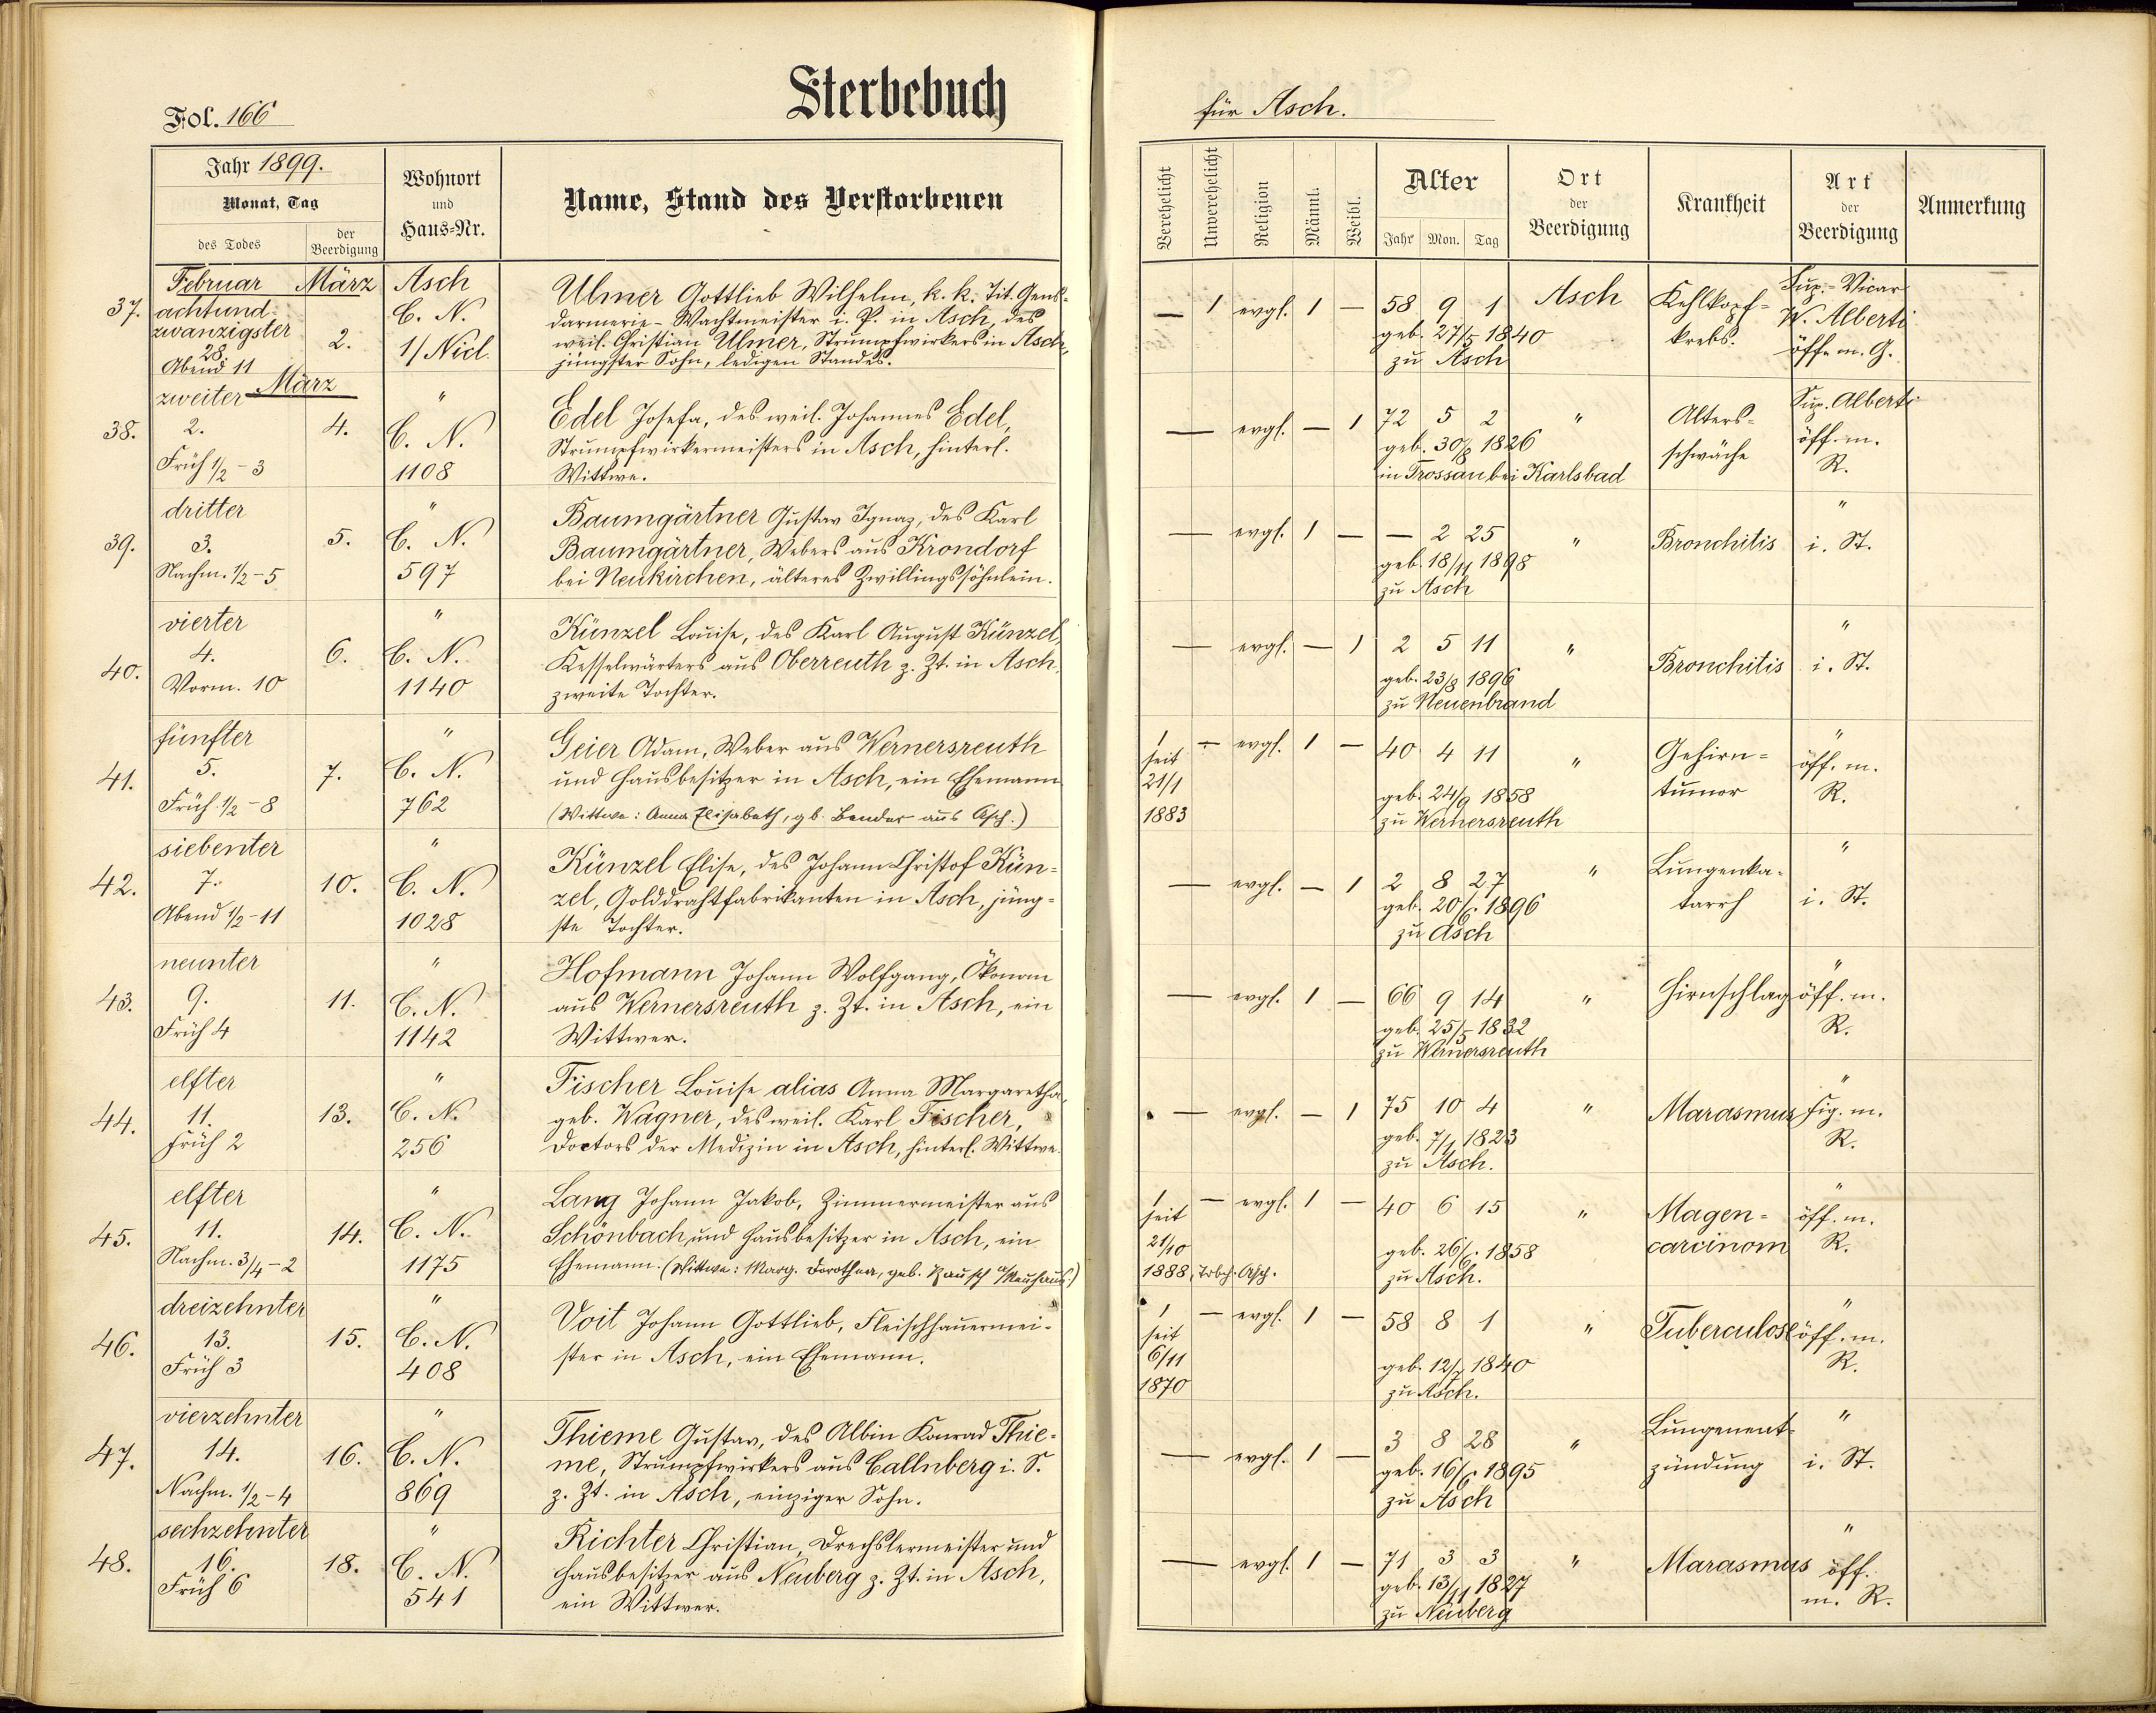 Fol. 166
Sterbebuch
für Asch.
Jahr 1899.
Monat, Tag
des Todes
der Beerdigung
Wohnort
und
Haus-Nr.
Name, Stand des Verstorbenen
Verehelicht
Unverehelicht
Religion
Männl.
Weibl.
Alter
Jahr Mon. Tag
Ort
der
Beerdigung
Krankheit
Art
der
Beerdigung
Anmerkung
37.
Februar März Asch
achtund-
zwanzigster
28.
Abend 11
2.
C. N.
1/Nicl.
Ulmer Gottlieb Wilhelm, k. k. Tit. Gens-
darmerie-Wachtmeister i. P. in Asch, des
weil. Christian Ulmer, Strumpfwirkers in Asch,
jüngster Sohn, ledigen Standes.
— 1 evgl. 1 — 58 9 1 Asch
geb. 27/5 1840
zu Asch
Kehlkopf-
krebs.
Sup.-Vicar
W. Alberti
öff. m. G.
März
38.
zweiter
2.
Früh 1/2-3
4.
"
C. N.
1108
Edel Josefa, des weil. Johannes Edel,
Strumpfwirkermeisters in Asch, hinterl.
Wittwe.
— evgl. — 1 72 5 2 "
geb. 30/8 1826
in Trossau bei Karlsbad
Alters-
schwäche
Sup. Alberti
öff. m.
R.
39.
dritter
3.
Nachm. 1/2-5
5.
"
C. N.
597
Baumgärtner Gustav Ignaz, des Karl
Baumgärtner, Webers aus Krondorf
bei Neukirchen, älteres Zwillingssöhnlein.
— evgl. 1 — — 2 25 "
geb. 18/11 1898
zu Asch
Bronchitis
"
i. St.
40.
vierter
4.
Vorm. 10
6.
"
C. N.
1140
Künzel Louise, des Karl August Künzel,
Kesselwärters aus Oberreuth z. Zt. in Asch,
zweite Tochter.
— evgl. — 1 2 5 11 "
geb. 23/8 1896
zu Neuenbrand
Bronchitis
"
i. St.
41.
fünfter
5.
Früh 1/2-8
7.
"
C. N.
762
Geier Adam, Weber aus Wernersreuth
und Hausbesitzer in Asch, ein Ehemann
(Wittwe: Anna Elisabeth, gb. Bender aus Asch.)
1 — evgl. 1 — 40 4 11 "
seit
21/1
1883
geb. 24/9 1858
zu Wernersreuth
Gehirn-
tumor
"
öff. m.
R.
42.
siebenter
7.
Abend 1/2-11
10.
"
C. N.
1028
Künzel Elise, des Johann Christof Kün-
zel, Golddrahtfabrikanten in Asch, jüng-
ste Tochter.
— evgl. — 1 2 8 27 "
geb. 20/6. 1896
zu Asch
Lungenka-
tarrh
"
i. St.
43.
neunter
9.
Früh 4
11.
"
C. N.
1142
Hofmann Johann Wolfgang, Ökonom
aus Wernersreuth z. Zt. in Asch, ein
Wittwer.
— evgl. 1 — 66 9 14 "
geb. 25/5 1832
zu Wernersreuth
Hirnschlag
"
öff. m.
R.
44.
elfter
11.
Früh 2
13.
"
C. N.
256
Fischer Louise alias Anna Margaretha,
geb. Wagner, des weil. Karl Fischer,
Doctors der Medizin in Asch, hinterl. Wittwe.
— evgl. — 1 75 10 4 "
geb. 7/1 1823
zu Asch.
Marasmus
"
fig. m.
R.
45.
elfter
11.
Nachm. 3/4-2
14.
"
C. N.
1175
Lang Johann Jakob, Zimmermeister aus
Schönbach und Hausbesitzer in Asch, ein
Ehemann. (Wittwe: Marg. Dorothea, geb. Rausch a/Neuhaus.)
1 — evgl. 1 — 40 6 15 "
seit
21/10
1888, Trbch. Asch.
geb. 26/6. 1858
zu Asch.
Magen-
carcinom
"
öff. m.
R.
46.
dreizehnter
13.
Früh 3
15.
"
C. N.
408
Voit Johann Gottlieb, Fleischhauermei-
ster in Asch, ein Ehemann.
1 — evgl. 1 — 58 8 1 "
seit
6/11
1870
geb. 12/7 1840
zu Asch.
Tuberculose
"
öff. m.
R.
47.
vierzehnter
14.
Nachm. 1/2-4
16.
"
C. N.
869
Thieme Gustav, des Albin Konrad Thie-
me, Strumpfwirkers aus Callnberg i. S.
z. Zt. in Asch, einziger Sohn.
— evgl. 1 — 3 8 28 "
geb. 16/6. 1895
zu Asch
Lungenent-
zündung
"
i. St.
48.
sechzehnter
16.
Früh 6
18.
"
C. N.
541
Richter Christian, Drechslermeister und
Hausbesitzer aus Neuberg z. Zt. in Asch,
ein Wittwer.
— evgl. 1 — 71 3 3 "
geb. 13/11 1827
zu Neuberg
Marasmus
"
öff.
m. R.